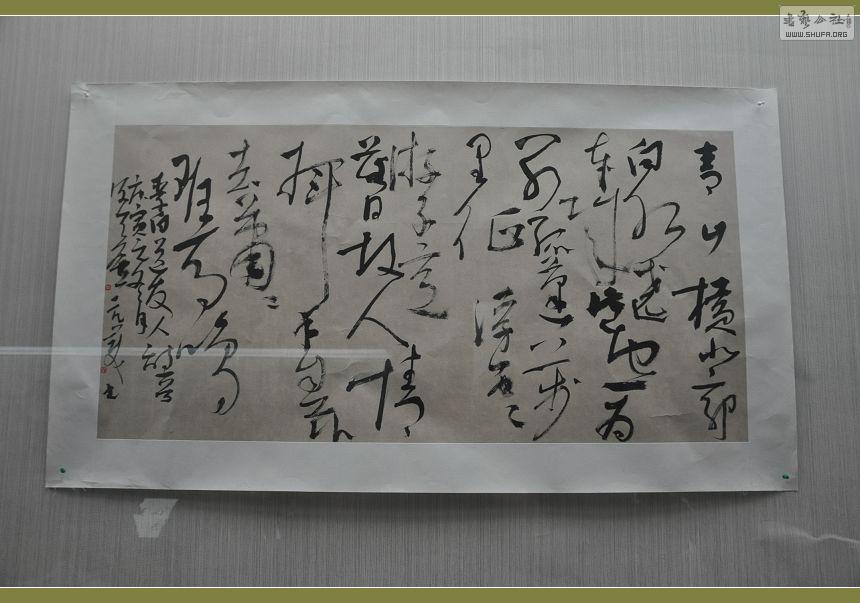 青山橫北郭
白水遶
東城此地一為
別孤蓬萬
里征浮雲
游子意
落日故人情
揮手自茲
去蕭〻
班馬鳴
李白送友人詩
书艺公社
WWW.SHUFA.ORG